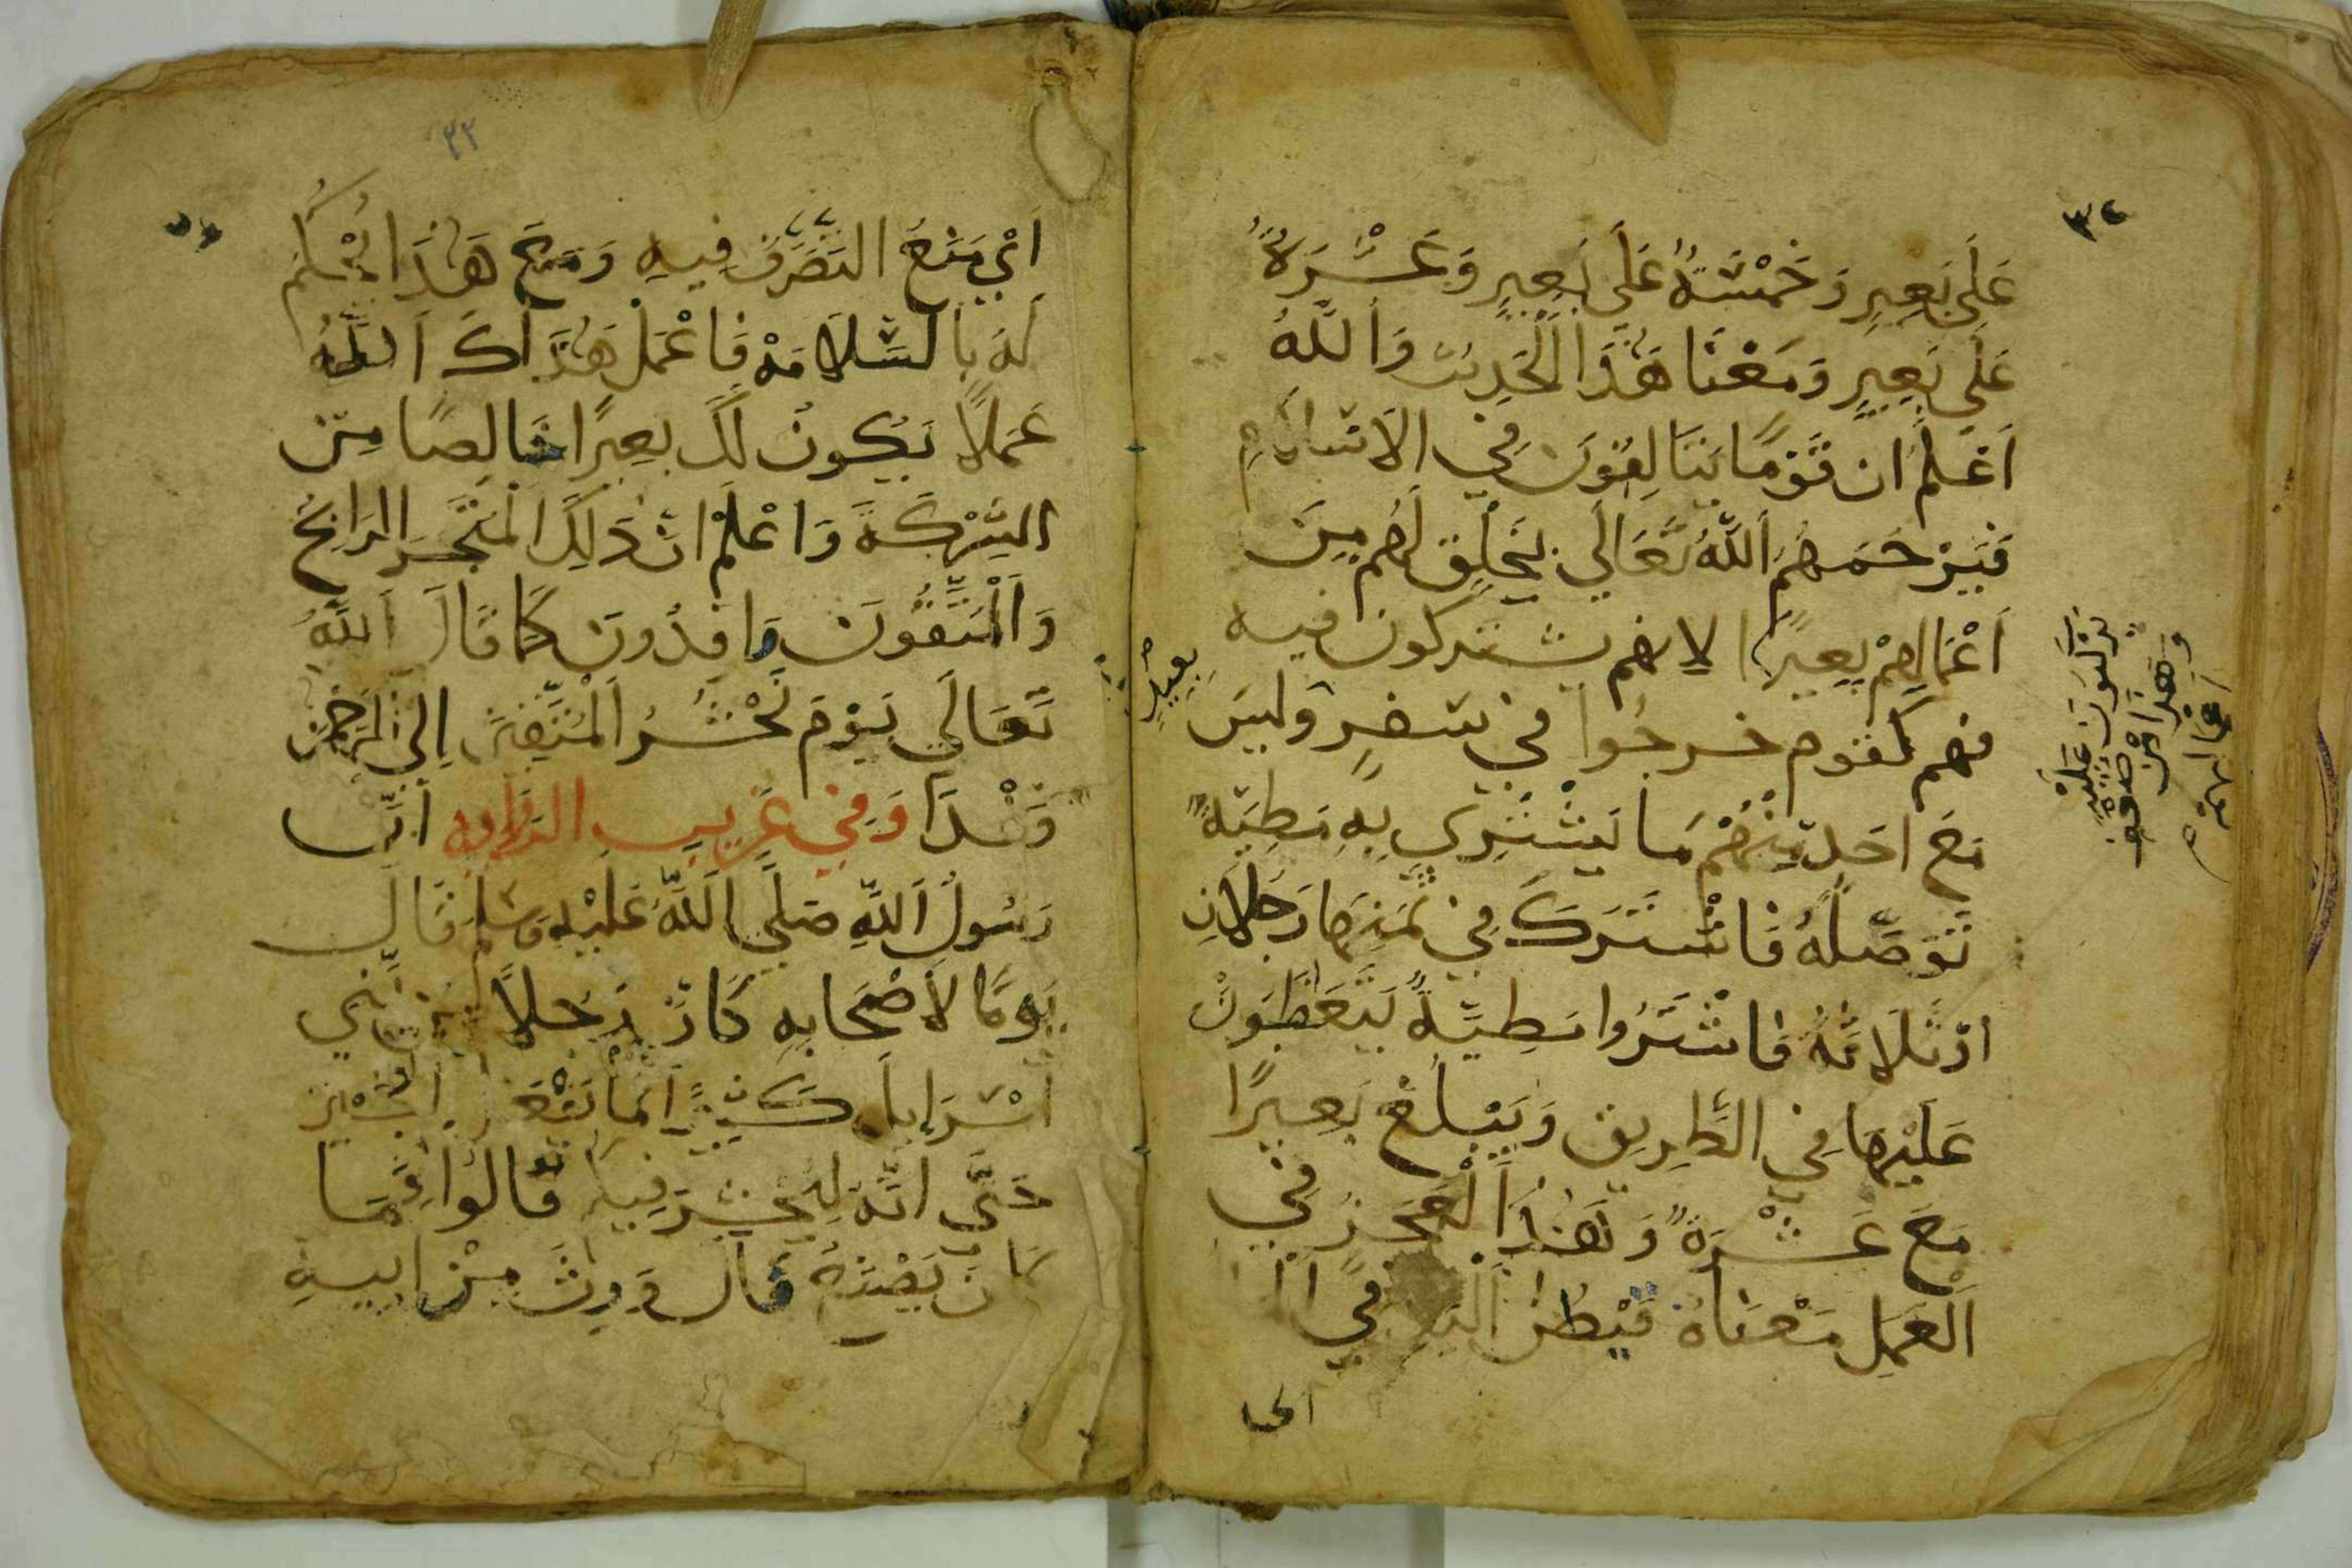 ٣٢
عَلَى بَعِيرٍ وَخَمْسَةٌ عَلَى بَعِيرٍ وَعَشْرَةٌ
عَلَى بَعِيرٍ وَمَعْنَا هَذَا الْحَدِيث وَاللَّهُ
اَعْلَمُ ان قَوْمًا يَتَالِفُونَ فِي الاسْلَامِ
فَيَرْحَمَهُمُ اللَّهُ تَعَالَي يَخْلِق لَهُم مِنَ
اَعْمَالِهِمْ بَعِيرًا لانهم يشتركون فيه
فهم كقوم خرجُوا في سَفرٍ وَليسَ
مَعَ احَدٍ مِنْهُمْ مَا يَشْتَرِي بِهِ مَطِيَّةً
تُوَصِّلُهُ فَاشْتَرَكَ فِي ثمَنِهَا رَجُلَانِ
اوْ ثَلَاثَةٌ فَاشْتَرُوا مَطِيَّةً يَتَعَقَّبُونَ
عَلَيْهَا فِي الطَّرِيقِ وَيَبْلُغ بَعِيرًا
مَعَ عَشْرَةٍ وَهَذَا الْعَجزُ فِي
اَلْعَمَلِ مَعْنَاهُ
الحا
يركبون عليه
وهذا من صدقه
اعمالهم
بعيرٍ
٣٣
اَيْ مَنَعَ التَصَرُّفَ فِيهِ وَمَعَ هَذَا يُحْكَم
لَهُ بِالسَّلَامَهْ فَاعْمَلْ هَدَاكَ اَللَّهُ
عَمَلًا يَكُونُ لَكَ بَعِيرًا خَالِصًا مِنَ
الشِّرْكَةِ وَاعْلَمْ انَّ ذَلِكَ الْمَتْجَر الرَابِحُ
وَاَلْمُتَّقُونَ وَافِدُونَ كَمَا قَالَ اَللَّهُ
تَعَالَي يَوْمَ نَحْشُرُ اَلْمُتَّقِينَ اِلَي الرَحْمَن
وَفْدًا وَفِي غَرِيب الروايه اَنَّ
رَسُولَ اَللَّهِ صَلَّي اَللَّهُ عَلَيْهِ وَسَلَّم قَالَ
يَوْمًا لاَصْحَابِهِ كَانَ رَجُلاً مِنْ بَنِي
اَسْرَايِلَ كَثِيرًا مَا يَفْعَل اَلْخَيْر
حَتَّي انَّهُ لَيُحْشَرَ فِيكُم قَالُوا وَمَا
كَانَ يَصْنَعُ قَالَ وَرِثَ مِنْ اَبِيهِ